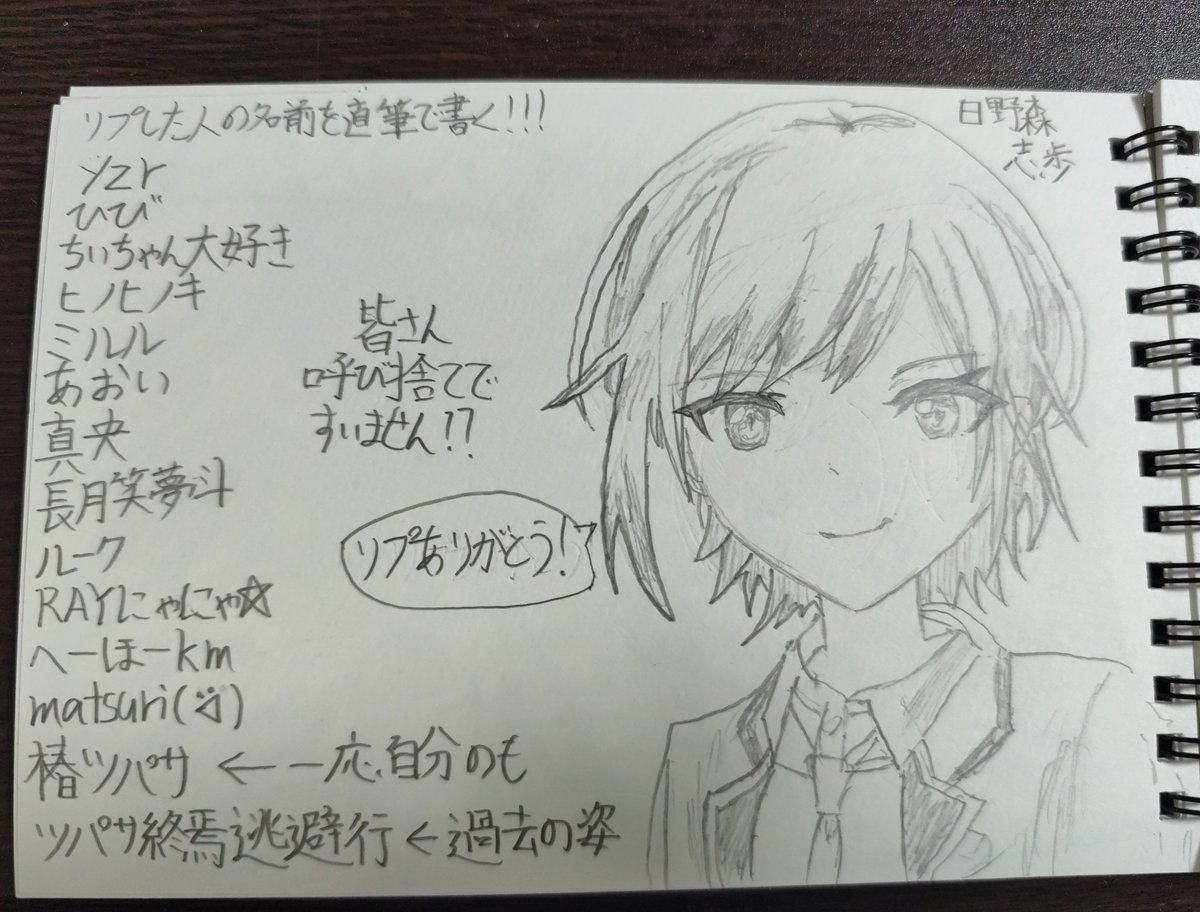 リプした人の名前を直筆で書く!!!
yzr
ひび
ちいちゃん大好き
ヒノヒノキ
ミルル
あおい
真央
長月笑夢斗
ルーク
RAYにゃにゃ☆
へーほーkm
matsuri(
椿ツバサ ← 一応自分のも
ツバサ終焉逃避行 ← 過去の姿
皆さん
呼び捨てで
すいません!?
リプありがとう!?
日野森
志歩